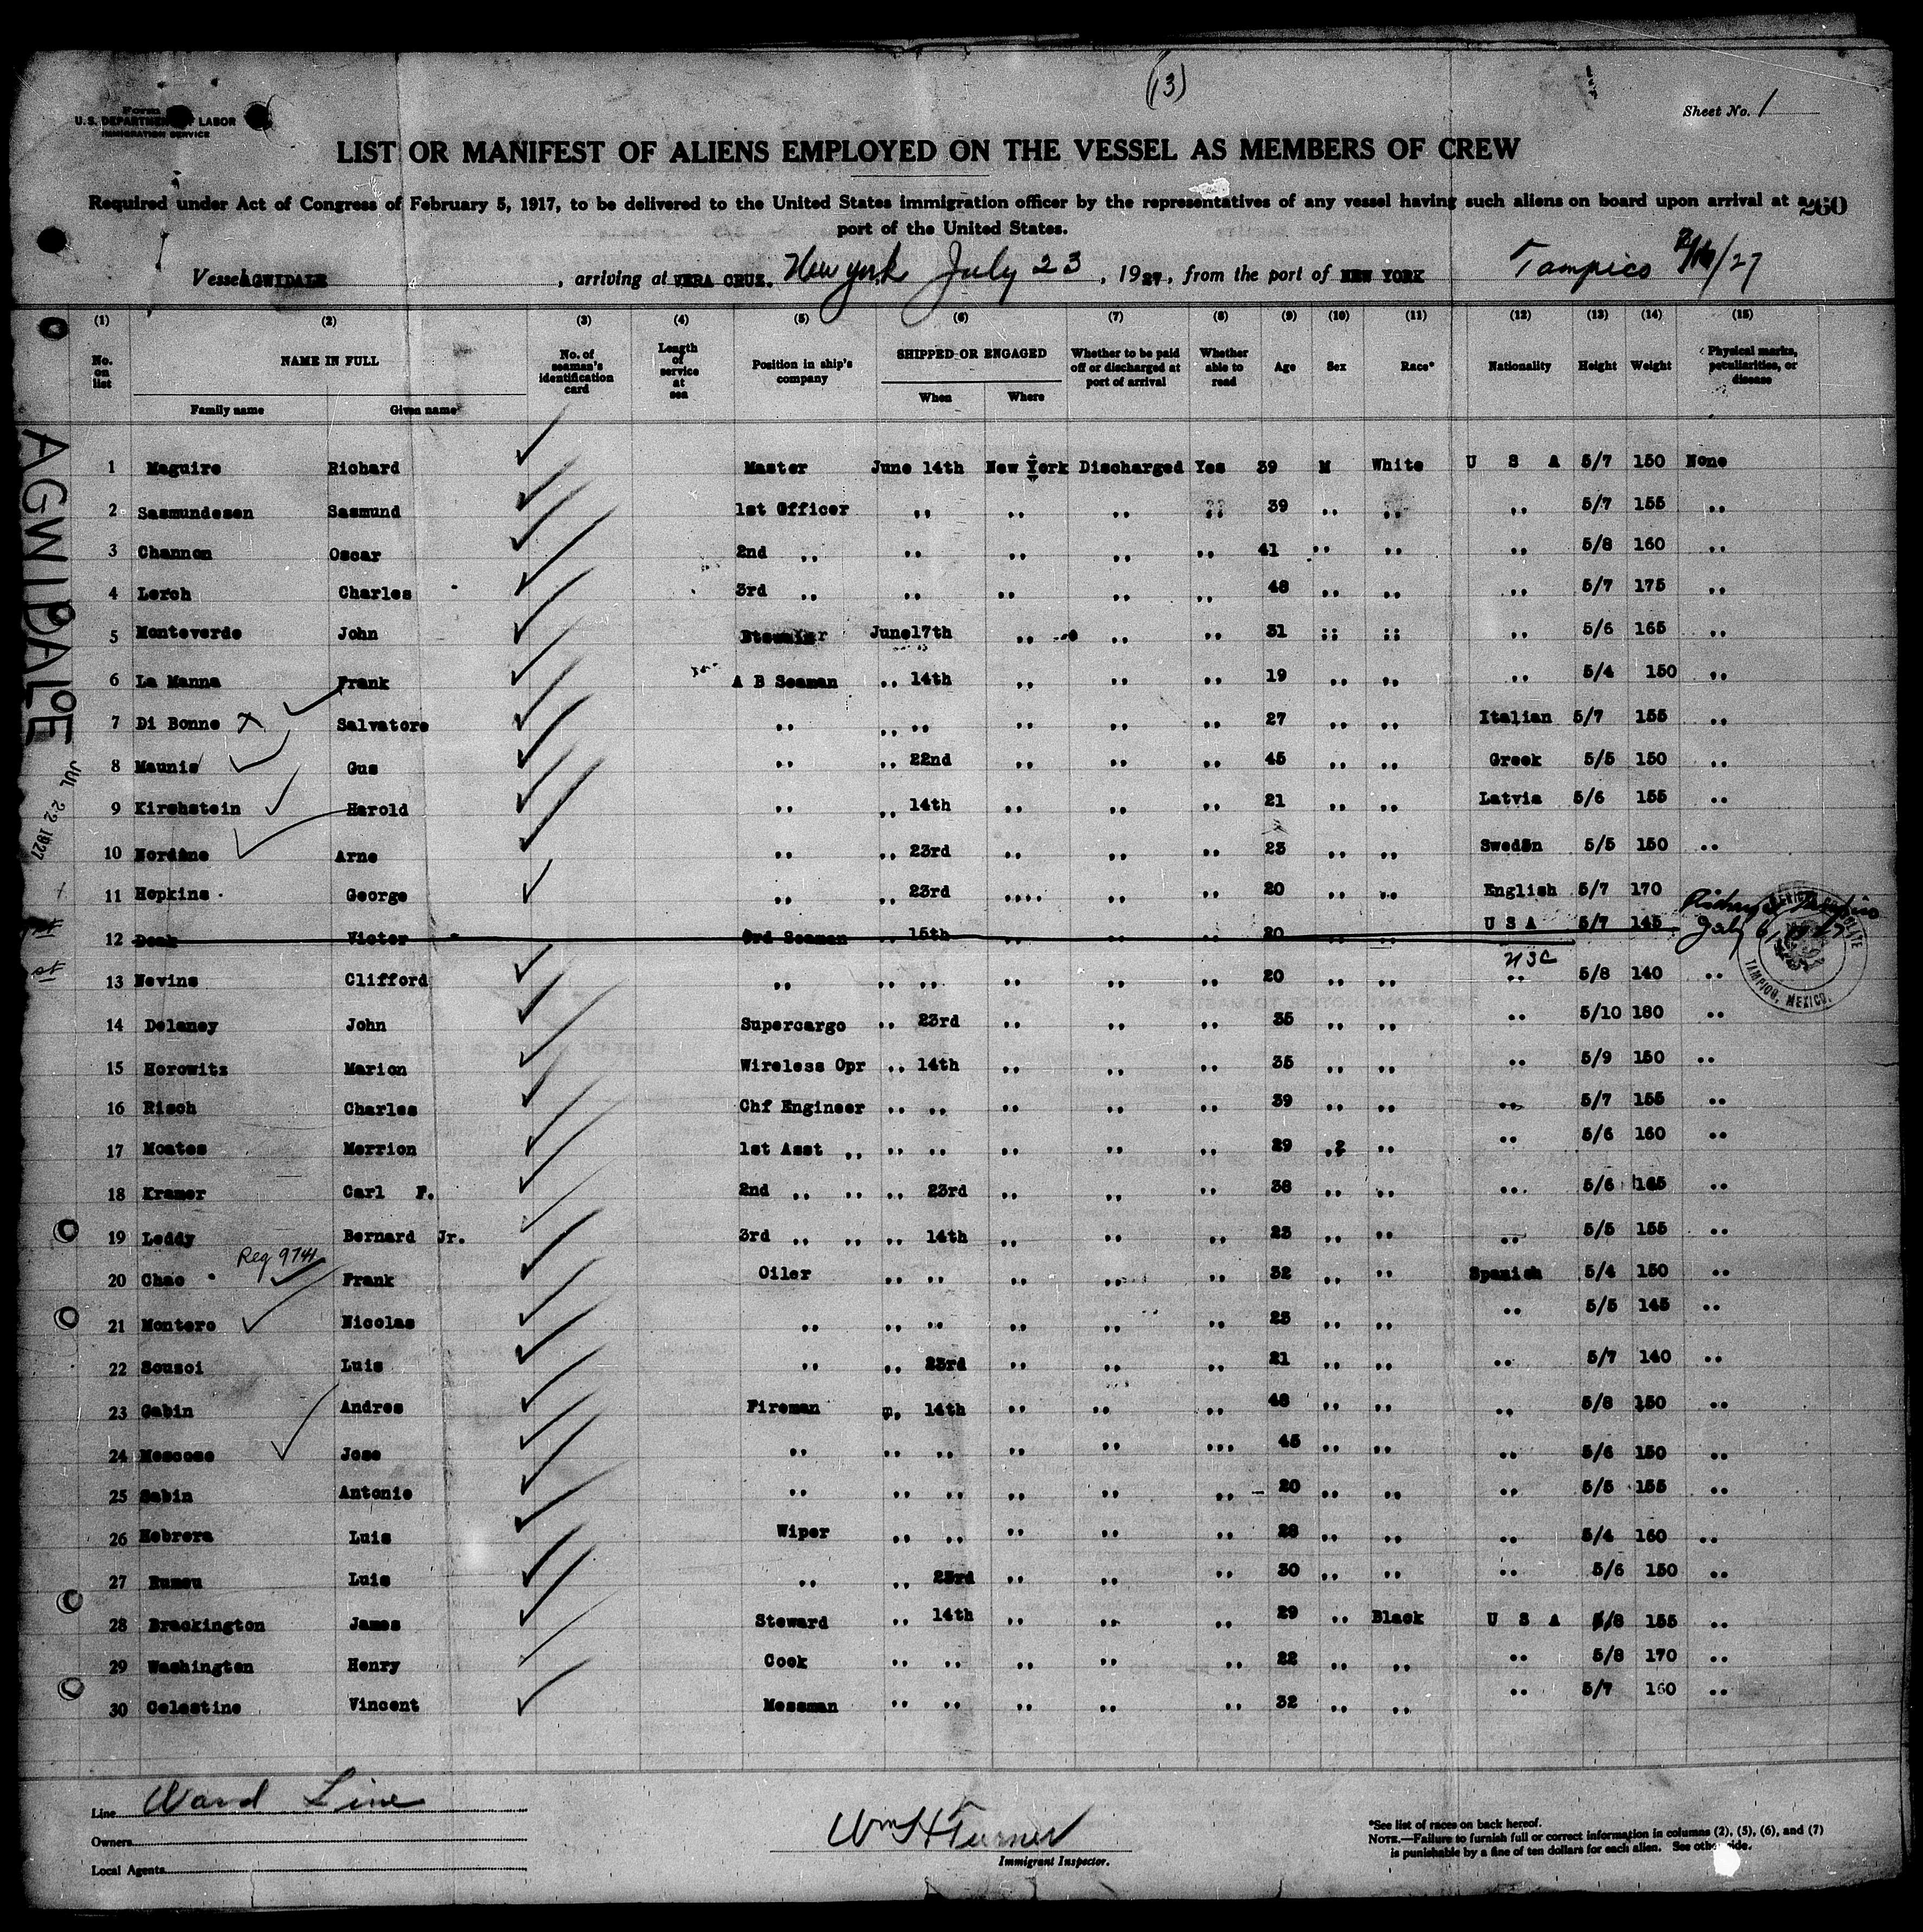 (13)
Form
U.S. DEPARTMENT OF LABOR
IMMIGRATION SERVICE
Sheet No. 1
LIST OR MANIFEST OF ALIENS EMPLOYED ON THE VESSEL AS MEMBERS OF CREW
Required under Act of Congress of February 5, 1917, to be delivered to the United States immigration officer by the representatives of any vessel having such aliens on board upon arrival at a
260
port of the United States.
Vessel AGWIDALE, arriving at VERA CRUZ. New York July 23, 1927, from the port of NEW YORK Tampico 7/16/27
(1) (2) (3) (4) (5) (6) (7) (8) (9) (10) (11) (12) (13) (14) (15)
No. on list NAME IN FULL No. of seaman's identification card Length of service at sea Position in ship's company SHIPPED OR ENGAGED Whether to be paid off or discharged at port of arrival Whether able to read Age Sex Race* Nationality Height Weight Physical marks, peculiarities, or disease
Family name Given name When Where
1 Maguire Richard Master June 14th New York Discharged Yes 39 M White U S A 5/7 150 None
2 Sasmundesen Sasmund 1st Officer ,, ,, ,, ,, 39 ,, ,, ,, 5/7 155 ,,
3 Channon Oscar 2nd ,, ,, ,, ,, ,, 41 ,, ,, ,, 5/8 160 ,,
4 Lerch Charles 3rd ,, ,, ,, ,, ,, 48 ,, ,, ,, 5/7 175 ,,
5 Monteverde John June17th ,, ,, ,, 31 ,, ,, ,, 5/6 165 ,,
6 La Manna Frank A B Seaman ,, 14th ,, ,, ,, 19 ,, ,, ,, 5/4 150 ,,
7 Di Bonne X Salvatore ,, ,, ,, ,, ,, ,, 27 ,, ,, Italian 5/7 155 ,,
8 Maunis Gus ,, ,, 22nd ,, ,, ,, 45 ,, ,, Greek 5/5 150 ,,
9 Kirshstein Harold ,, ,, 14th ,, ,, ,, 21 ,, ,, Latvia 5/6 155 ,,
10 Nordine Arne ,, ,, 23rd ,, ,, ,, 23 ,, ,, Sweden 5/5 150 ,,
11 Hopkins George ,, ,, 23rd ,,,, ,, ,, 20 ,, ,, English 5/7 170 ,,
12 Doak Victor Ord Seaman ,, 15th ,, ,, ,, 20 ,, ,, U S A 5/7 145
13 Nevins Clifford ,, ,, ,, ,, ,, ,, 20 ,, ,, USC ,, 5/8 140 ,,
14 Delaney John Supercargo ,, 23rd ,, ,, ,, 35 ,, ,, ,, 5/10 180 ,,
15 Horowitz Marion Wireless Opr ,, 14th ,, ,, ,, 35 ,, ,, ,, 5/9 150 ,,
16 Risch Charles Chf Engineer ,, ,, ,, ,, ,, 39 ,, ,, ,, 5/7 155 ,,
17 Moates Merrion 1st Asst ,, ,, ,, ,, ,, ,, 29 ,, ,, ,, 5/6 160 ,,
18 Kramer Carl F. 2nd ,, ,, ,, 23rd ,, ,, ,, 38 ,, ,, ,, 5/6 165 ,,
19 Leddy Bernard Jr. 3rd ,, ,, ,, 14th ,, ,, ,, 23 ,, ,, ,, 5/5 155 ,,
Reg 9741
20 Chao Frank Oiler ,, ,, ,, ,, ,, 32 ,, ,, Spanish 5/4 150 ,,
21 Montero Nicolas ,, ,, ,, ,, ,, ,, 25 ,, ,, ,, 5/5 145 ,,
22 Sousoi Luis ,, ,, 23rd ,, ,, ,, 21 ,, ,, ,, 5/7 140 ,,
23 Gabin Andres Fireman ,, 14th ,, ,, ,, 48 ,, ,, ,, 5/8 150 ,,
24 Moscoso Jose ,, ,, ,, ,, ,, ,,, 45 ,, ,, ,, 5/6 150 ,,
25 Sabin Antonio ,, ,, ,, ,, ,, ,, 20 ,, ,, ,, 5/5 155 ,,
26 Hebrera Luis Wiper ,, ,, ,, ,, ,, 28 ,, ,, ,, 5/4 160 ,,
27 Luis ,, ,, 23rd ,, ,, ,, 30 ,, ,, ,, 5/6 150 ,,
28 Brackington James Steward ,, 14th ,, ,, ,, 29 ,, Black U S A 5/8 155 ,,
29 Washington Henry Cook ,, ,, ,, ,, ,, 22 ,, ,, ,, 5/8 170 ,,
30 Celestine Vincent Messman ,, ,, ,, ,, ,, 32 ,, ,, ,, 5/7 160 ,,
AGWIDALE
JUL 22 1927
AMERICAN CONSULATE
TAMPICO, MEXICO.
Line Ward Line
Owners
Local Agents
Wm H Turner
Immigrant Inspector.
*See list of races on back hereof.
NOTE.—Failure to furnish full or correct information in columns (2), (5), (6), and (7)
is punishable by a fine of ten dollars for each alien. See other side.